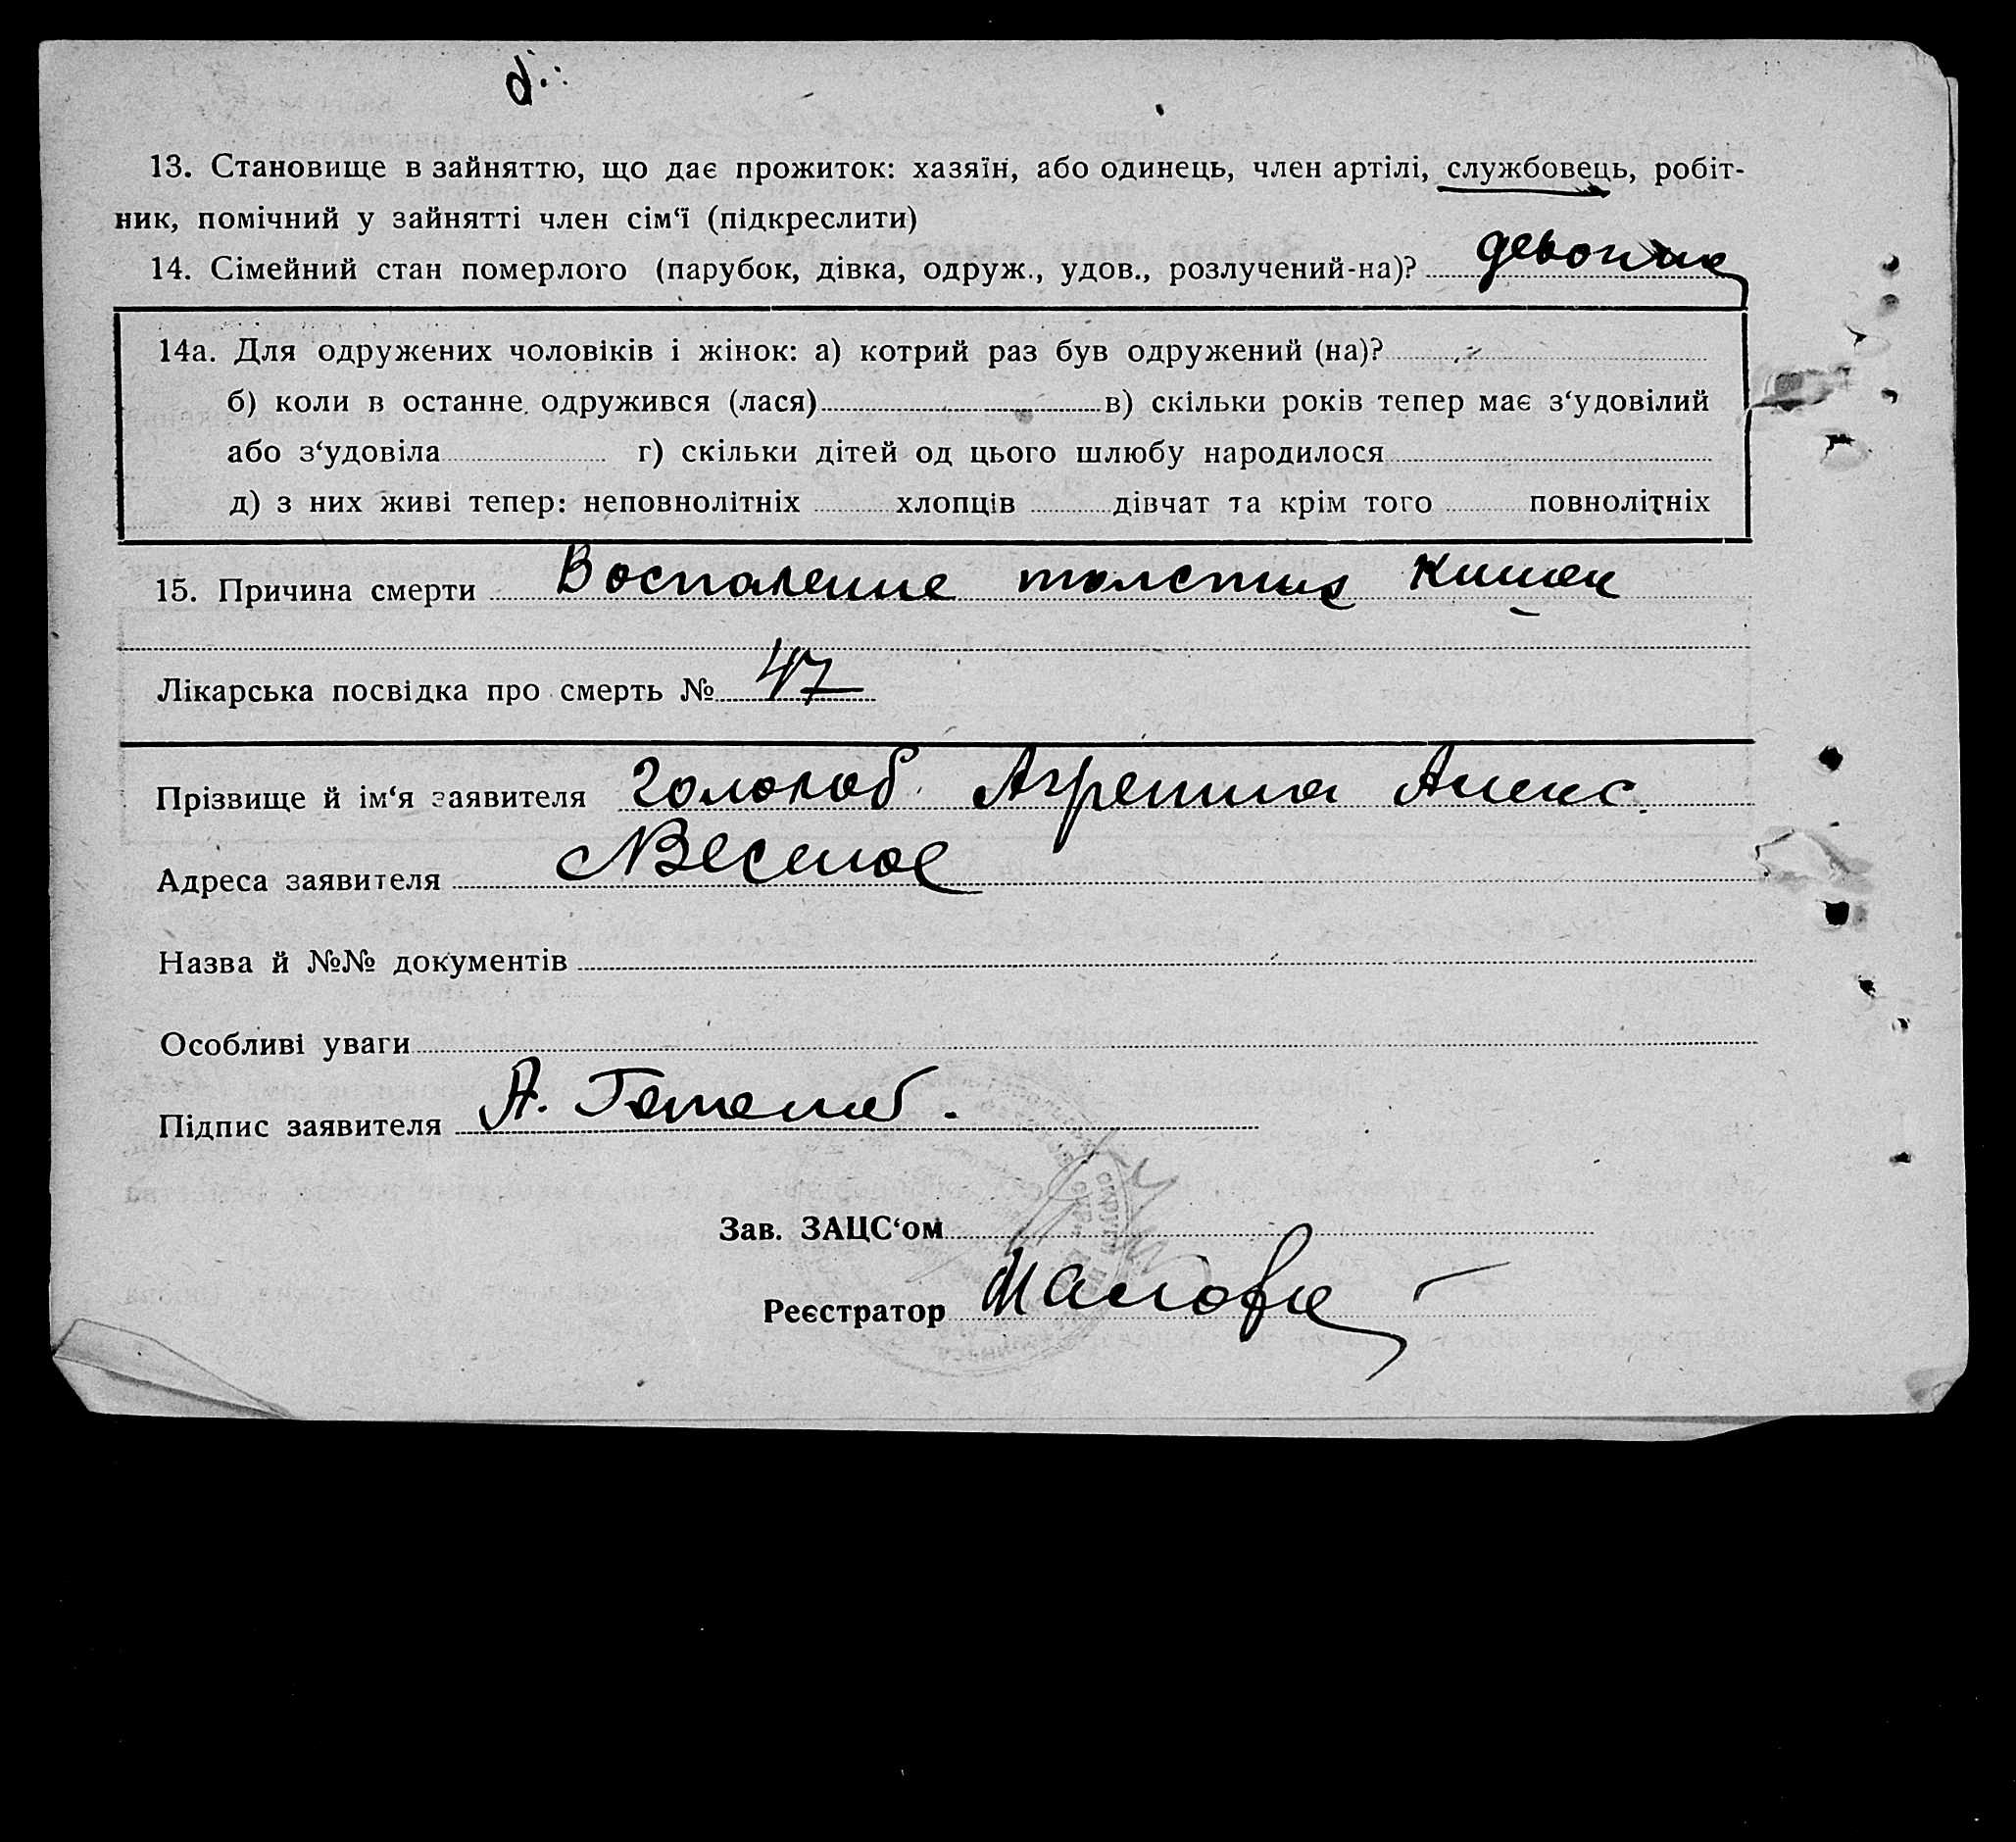 13. Становище в зайняттю, що дає прожиток: хазяїн, або одинець, член артілі, службовець, робіт-
ник, помічний у зайнятті член сім‘ї (підкреслити)
14. Сімейний стан померлого (парубок, дівка, одруж., удов., розлучений-на)? девочка
14а. Для одружених чоловіків і жінок: а) котрий раз був одружений (на)?
б) коли в останне одружився (лася) в) скільки років тепер має з‘удовілий
або з‘удовіла г) скільки дітей од цього шлюбу народилося
д) з них живі тепер: неповнолітніх хлопців дівчат та крім того повнолітніх
15. Причина смерти Воспаление толстих кишек
Лікарська посвідка про смерть № 47
Прізвище й ім‘я заявителя Гололоб Агрепина Алекс.
Адреса заявителя Веселое
Назва й №№ документів
Особливі уваги
Підпис заявителя А.
Зав. ЗАЦС‘ом
Реєстратор